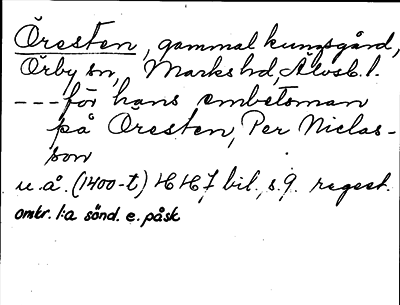 Öresten, gammal kungsgård,
Örby sn, Marks hd, Älvsb. l.
--- för hans embetsman
på Öresten, Per Niclas-
son
u.å. (1400-t) HH 7, bil., s. 9. regest.
omkr. 1:a sönd. e. påsk